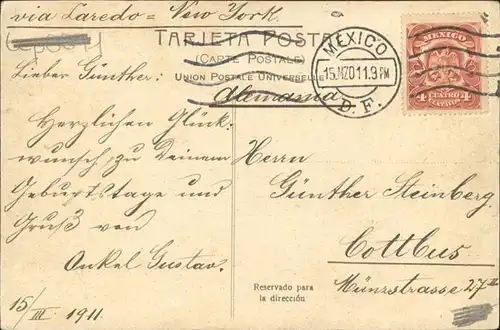 via Laredo = New York.
TARJETA POSTAL
(CARTE POSTALE)
UNION POSTALE UNIVERSELLE
Alemania
MEXICO
15. MZO 11. 9 PM
D. F.
MEXICO
4 CUATRO 4
CENTAVOS
Lieber Günther:
Herzlichen Glück-
wunsch zu Deinem
Geburtstage und
Gruß von
Onkel Gustav.
15/III. 1911.
Herrn
Günther Steinberg
Cottbus
Münzstrasse 27 II
Reservado para
la dirección